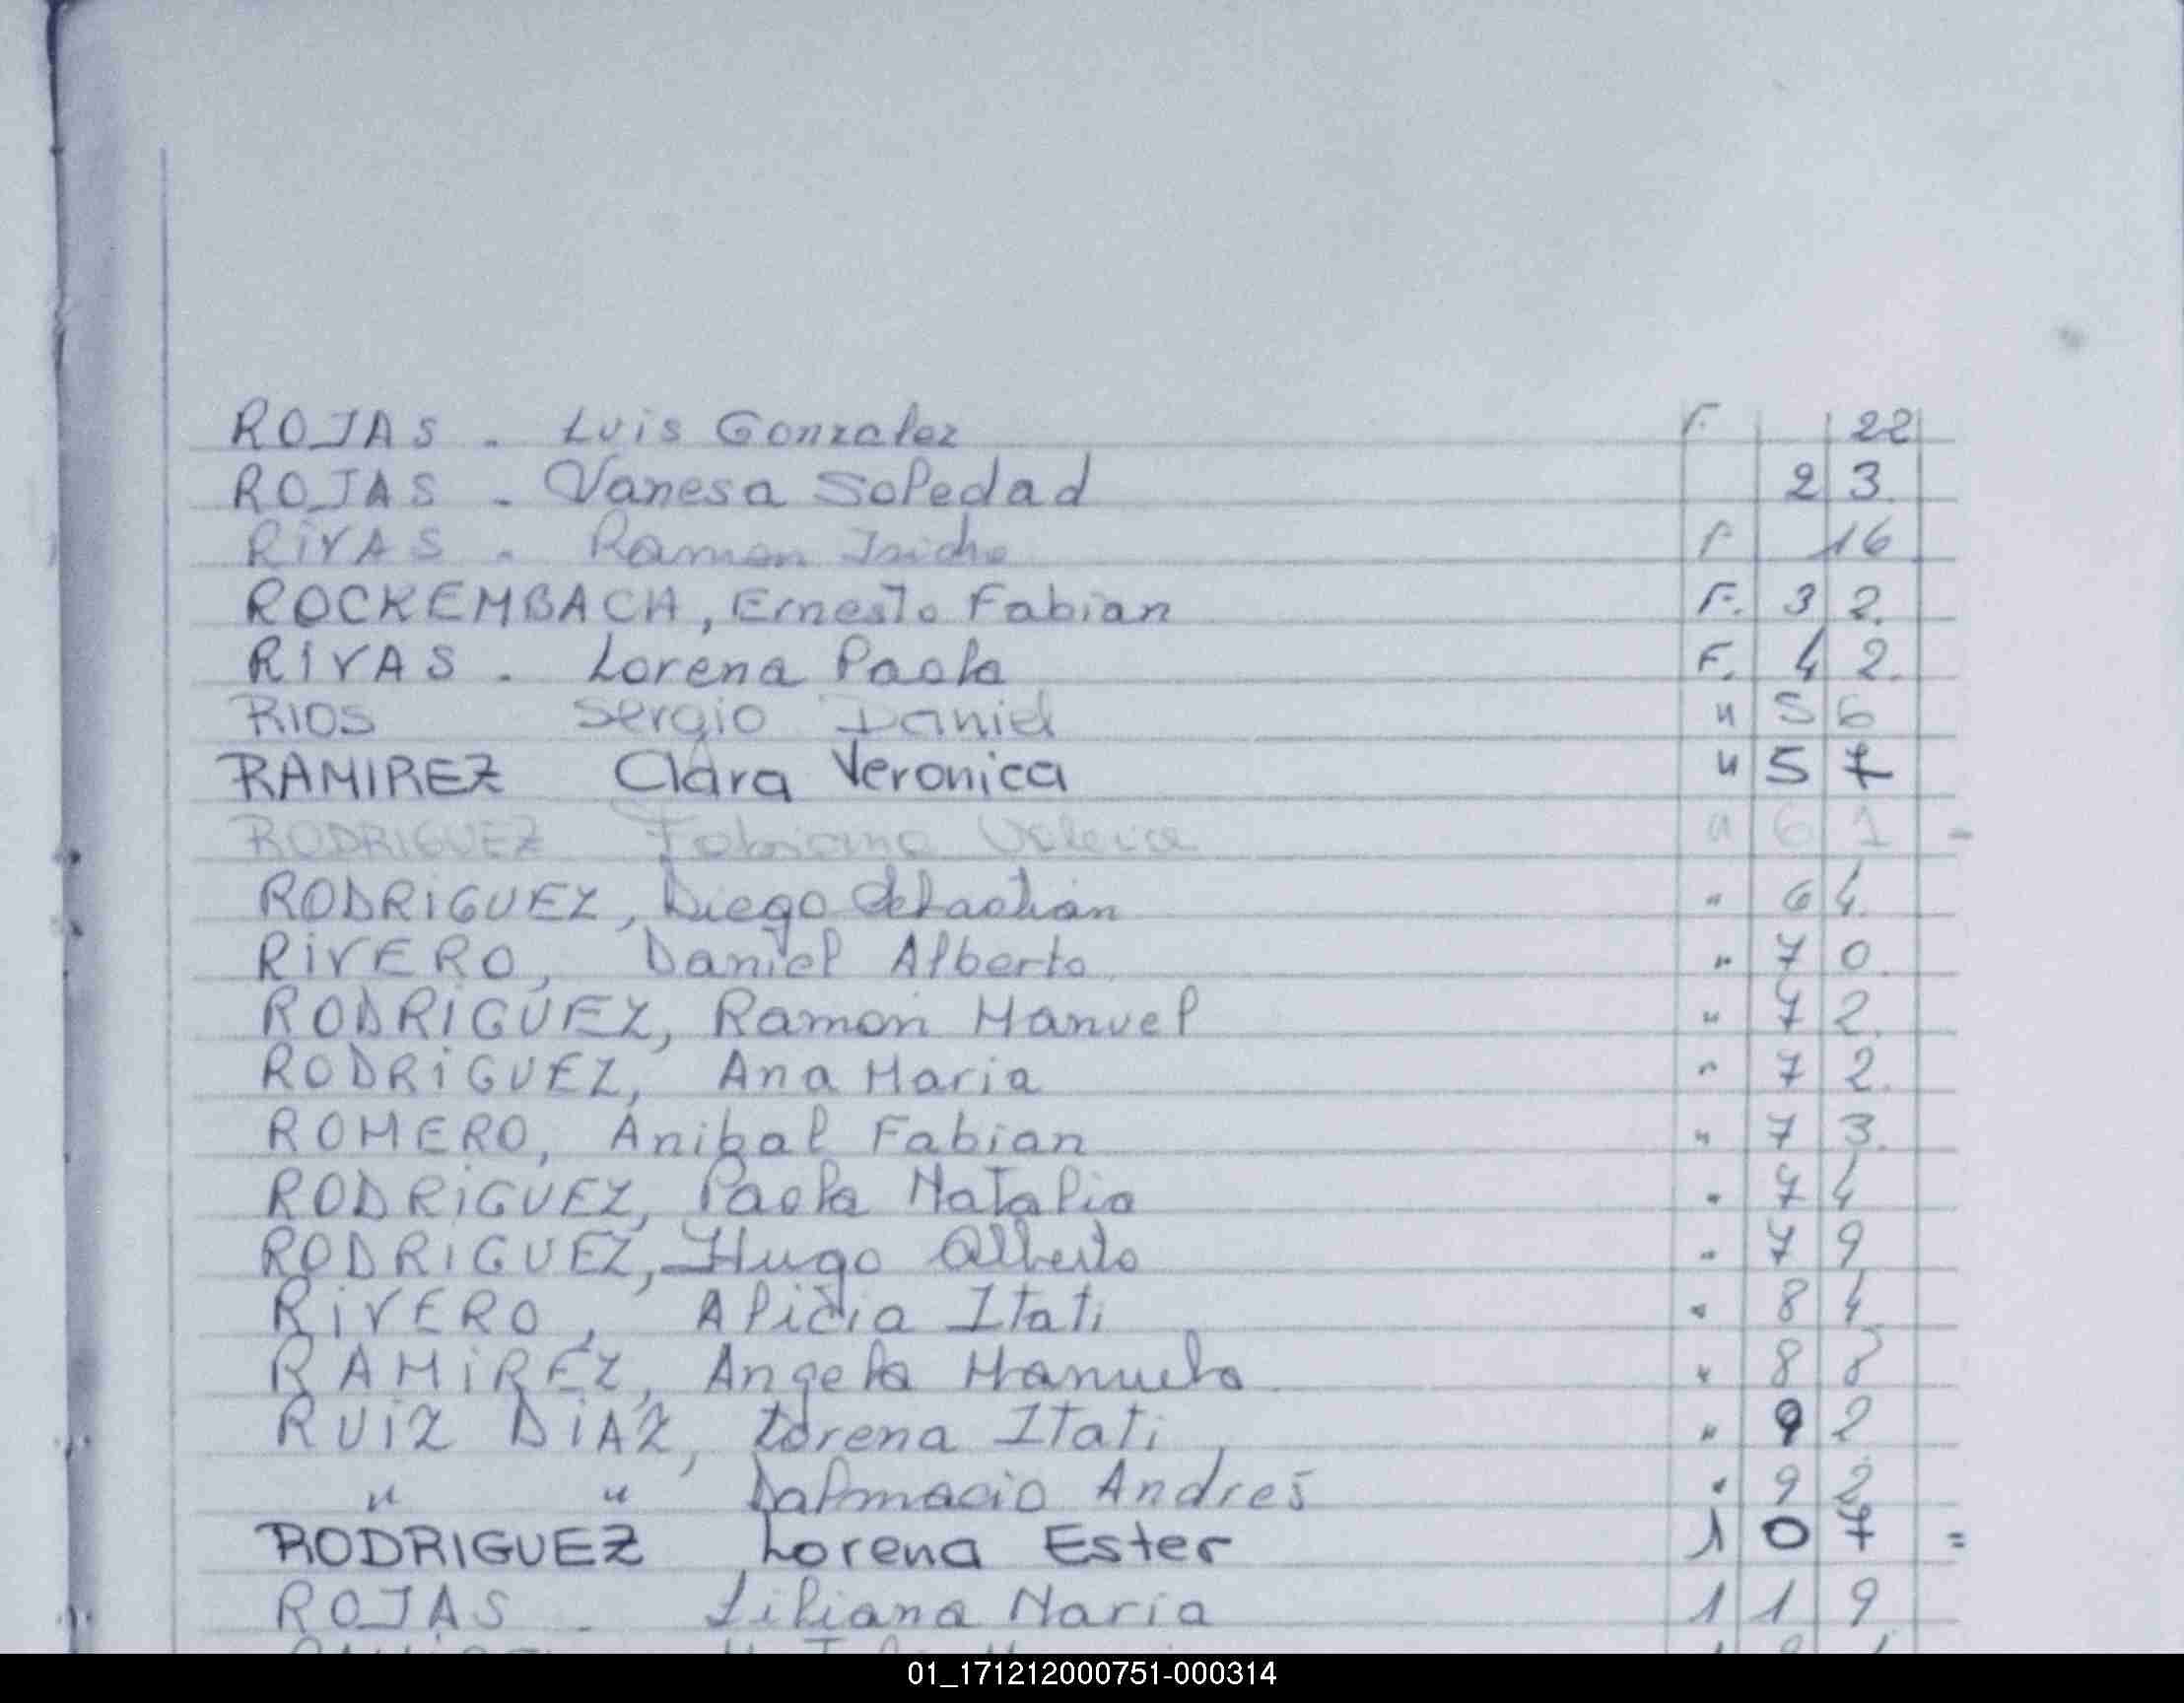 ROJAS - Luis Gonzalez F. 22
ROJAS - Vanesa Soledad 23
RIVAS - Ramon F 16
ROCKEMBACH, Ernesto Fabian F. 32
RIVAS - Lorena Paola F. 42
RIOS Sergio Daniel " 56
RAMIREZ Clara Veronica " 57
RODRIGUEZ Fabiana Valeria " 61 -
RODRIGUEZ, Diego Sebastian " 64
RIVERO, Daniel Alberto " 70
RODRIGUEZ, Ramon Manuel " 72
RODRIGUEZ, Ana Maria " 72
ROMERO, Anibal Fabian " 73
RODRIGUEZ, Paola Natalia " 74
RODRIGUEZ, Hugo Alberto " 79
RIVERO, Alicia Itati " 84
RAMIREZ, Angela Manuela " 88
RUIZ DIAZ, Lorena Itati " 92
" " Dalmacio Andres " 92
RODRIGUEZ Lorena Ester 107 =
ROJAS - Liliana Maria 119
01_171212000751-000314